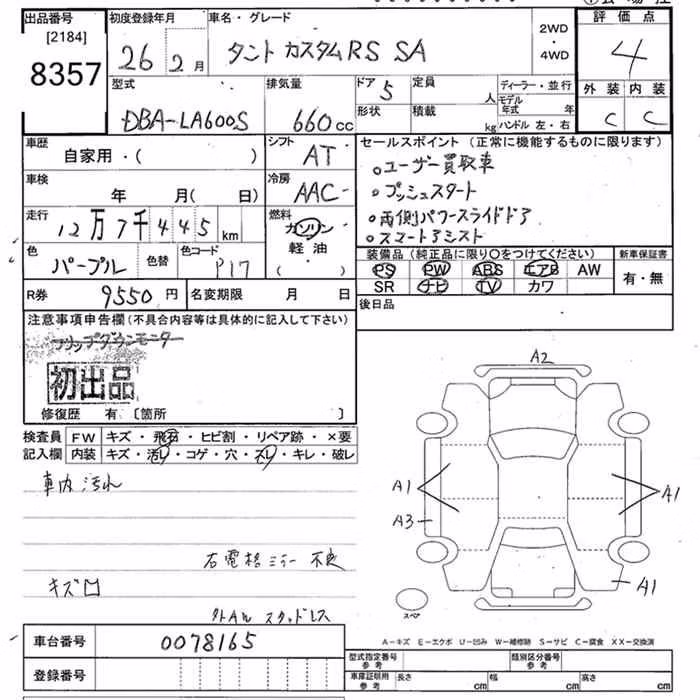 出品番号 初度登録年月 車名・グレード 評価点
[2184]
8357
26年2月 タント カスタムRS SA 2WD・4WD 4
型式 排気量 ドア 5 定員 人 ディーラー・並行 外装 内装
DBA-LA600S 660cc 形状 積載 kg モデル年式 年 ハンドル 左・右 C C
車歴 自家用・( ) シフト AT セールスポイント(正常に機能するものに限ります)
。ユーザー買取車
車検 年 月( 日) 冷房 AAC
。プッシュスタート
走行 12万7千445km 燃料 ガソリン・軽油 ( )
。両側パワースライドドア
。スマートアシスト
色 パープル 色替 色コード P17
装備品(純正品に限り〇をつけてください) 新車保証書
PS PW ABS エアB AW 有・無
SR ナビ TV カワ
R券 9550円 名変期限 月 日 後日品
注意事項申告欄(不具合内容等は具体的に記入して下さい)
フリップダウンモニター
初出品
修復歴 有 〔箇所 〕
検査員 FW キズ・飛石・ヒビ割・リペア跡・×要
記入欄 内装 キズ・汚レ・コゲ・穴・スレ・キレ・破レ
車内汚れ
右電格ミラー 不良
キズ凹
外AW スタッドレス
A2
A1
A3
A1
A1
スペア
A-キズ E-エクボ U-凹み W-補修跡 S-サビ C-腐食 XX-交換済
車台番号 0078165
登録番号
型式指定番号 参考 類別区分番号 参考
車庫証明用 参考 長さ cm 幅 cm 高さ cm